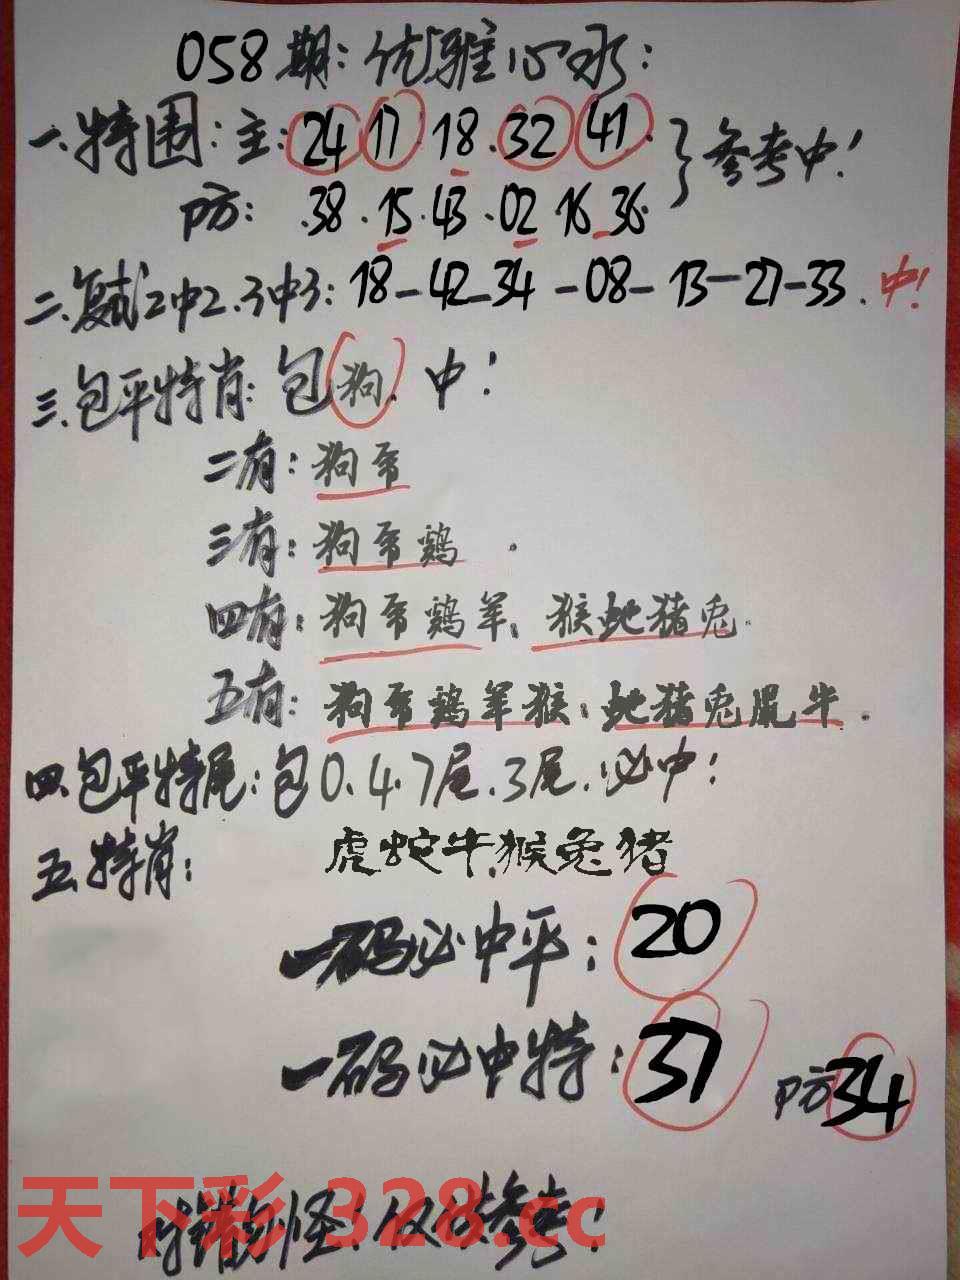 058期:优雅心水:
一.特围:主:24 17 18.32 41.
}参考中!
防: .38.15.43.02 16 36.
二.复式2中2.3中3:18-42-34-08-13-27-33.中!
三.包平特肖:包狗.中!
二有:狗
三有:狗 鸡.
四有:狗 鸡羊;猴蛇猪兔.
五有:狗 鸡羊猴;蛇猪兔鼠牛.
四.包平特尾:包0.4.7尾.3尾.必中!
五.特肖: 虎蛇牛猴兔猪
一码必中平:20
一码必中特:37 防34
对错勿怪!仅供参考!
天下彩 328.cc